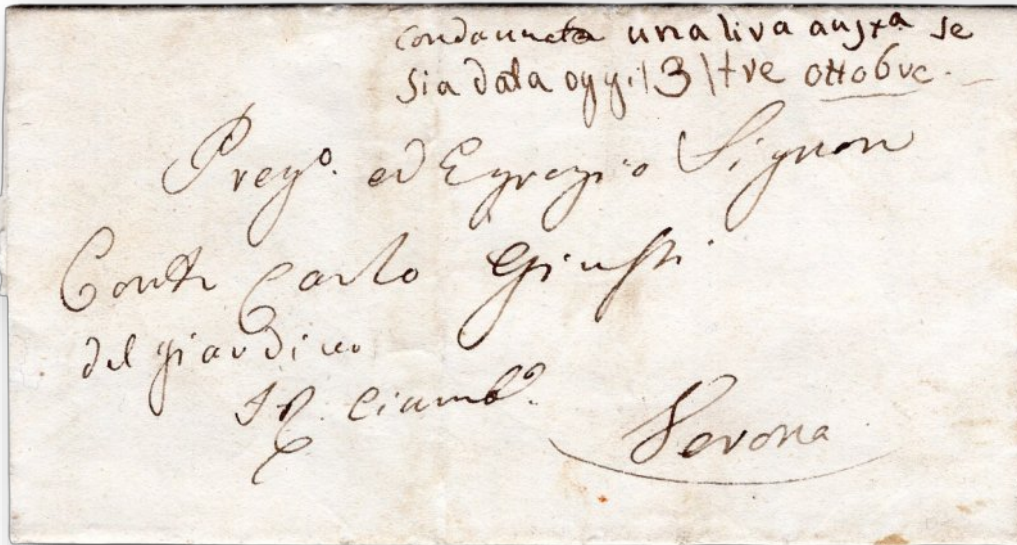 condannata una lira austra se
sia data oggi |3| tre ottobre.
Prego. ed Egregio Signor
Conte Carlo Giusti
del giardino
Ciambo.
Verona